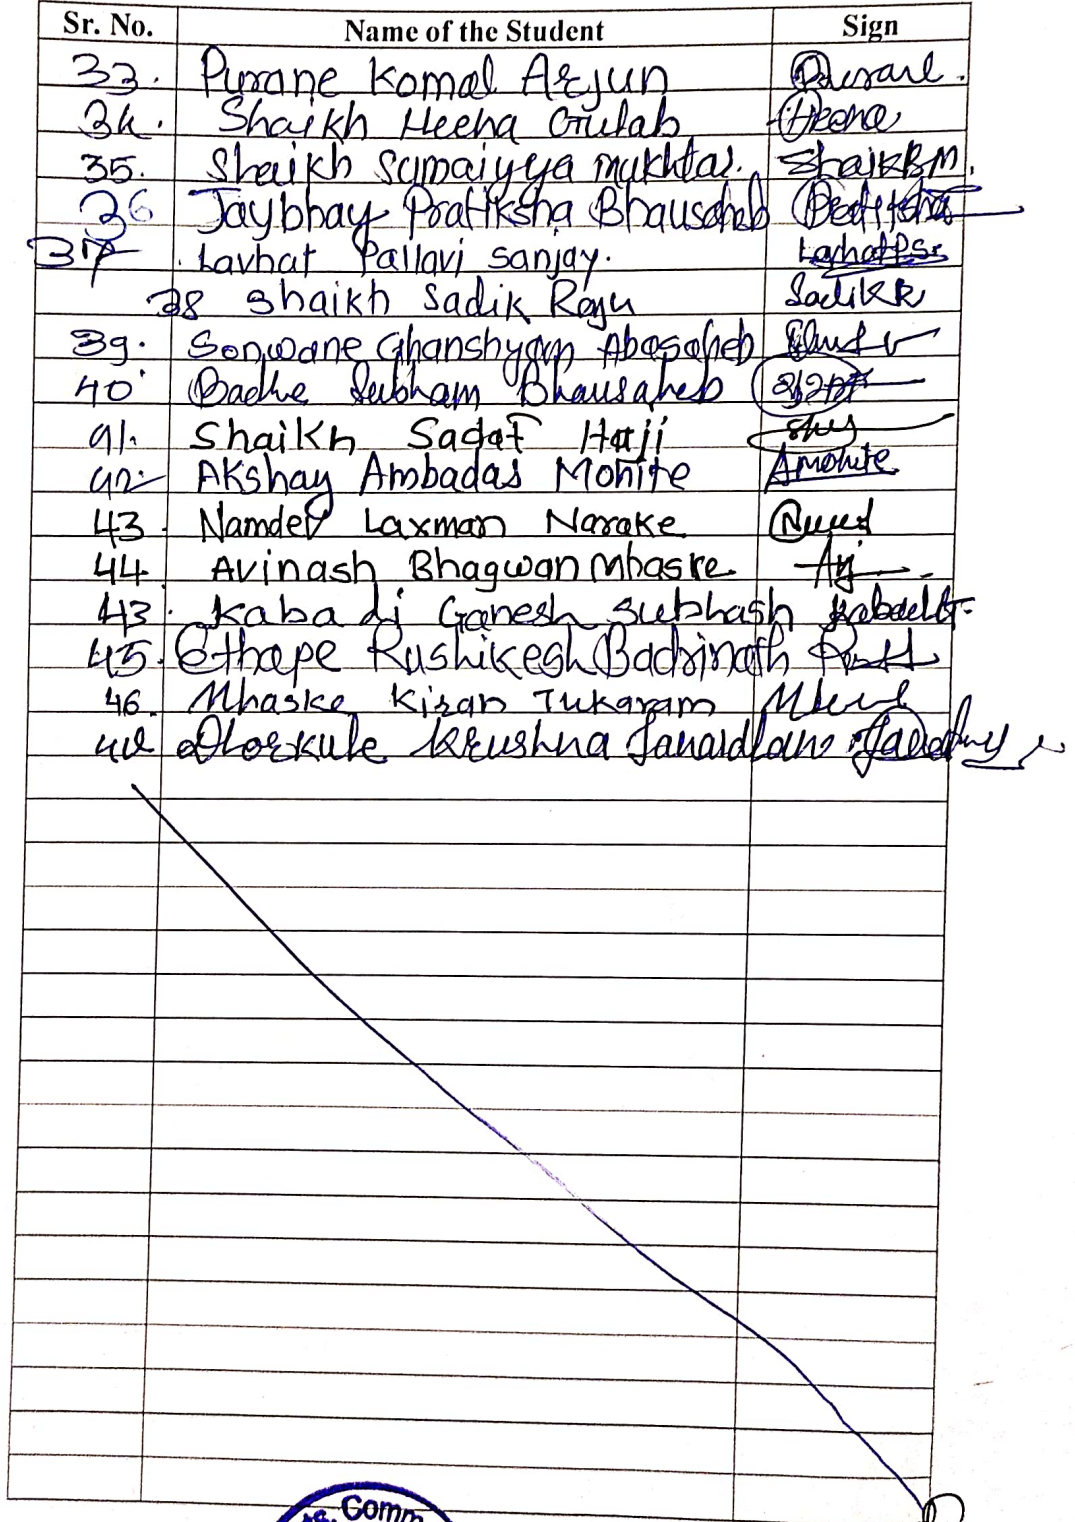 Sr. No. Name of the Student Sign
33. Purane Komal Arjun
34. Shaikh Heena Gulab Heena
35. Shaikh Sumaiyya mukhtar. Shaikh B.M.
36 Jaybhay Pratiksha Bhausaheb
37 Lavhat Pallavi Sanjay.
38 Shaikh Sadik Raju Sadik R
39. Sonwane Ghanshyam Abasaheb
40 Badhe Subham Bhausaheb
41. Shaikh Sadaf Haji
42 Akshay Ambadas Mohite AMohite
43. Namdev Laxman Narake
44 Avinash Bhagwan Mhaske
43. Kabadi Ganesh Subhash
45. Ethape Rushikesh Badrinath
46. Mhaske Kiran Tukaram
Krushna Janardhan
Comm